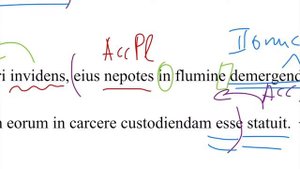 AccPl
ri invidens, eius nepotes in flumine demergend
Acc
n eorum in carcere custodiendam esse statuit.